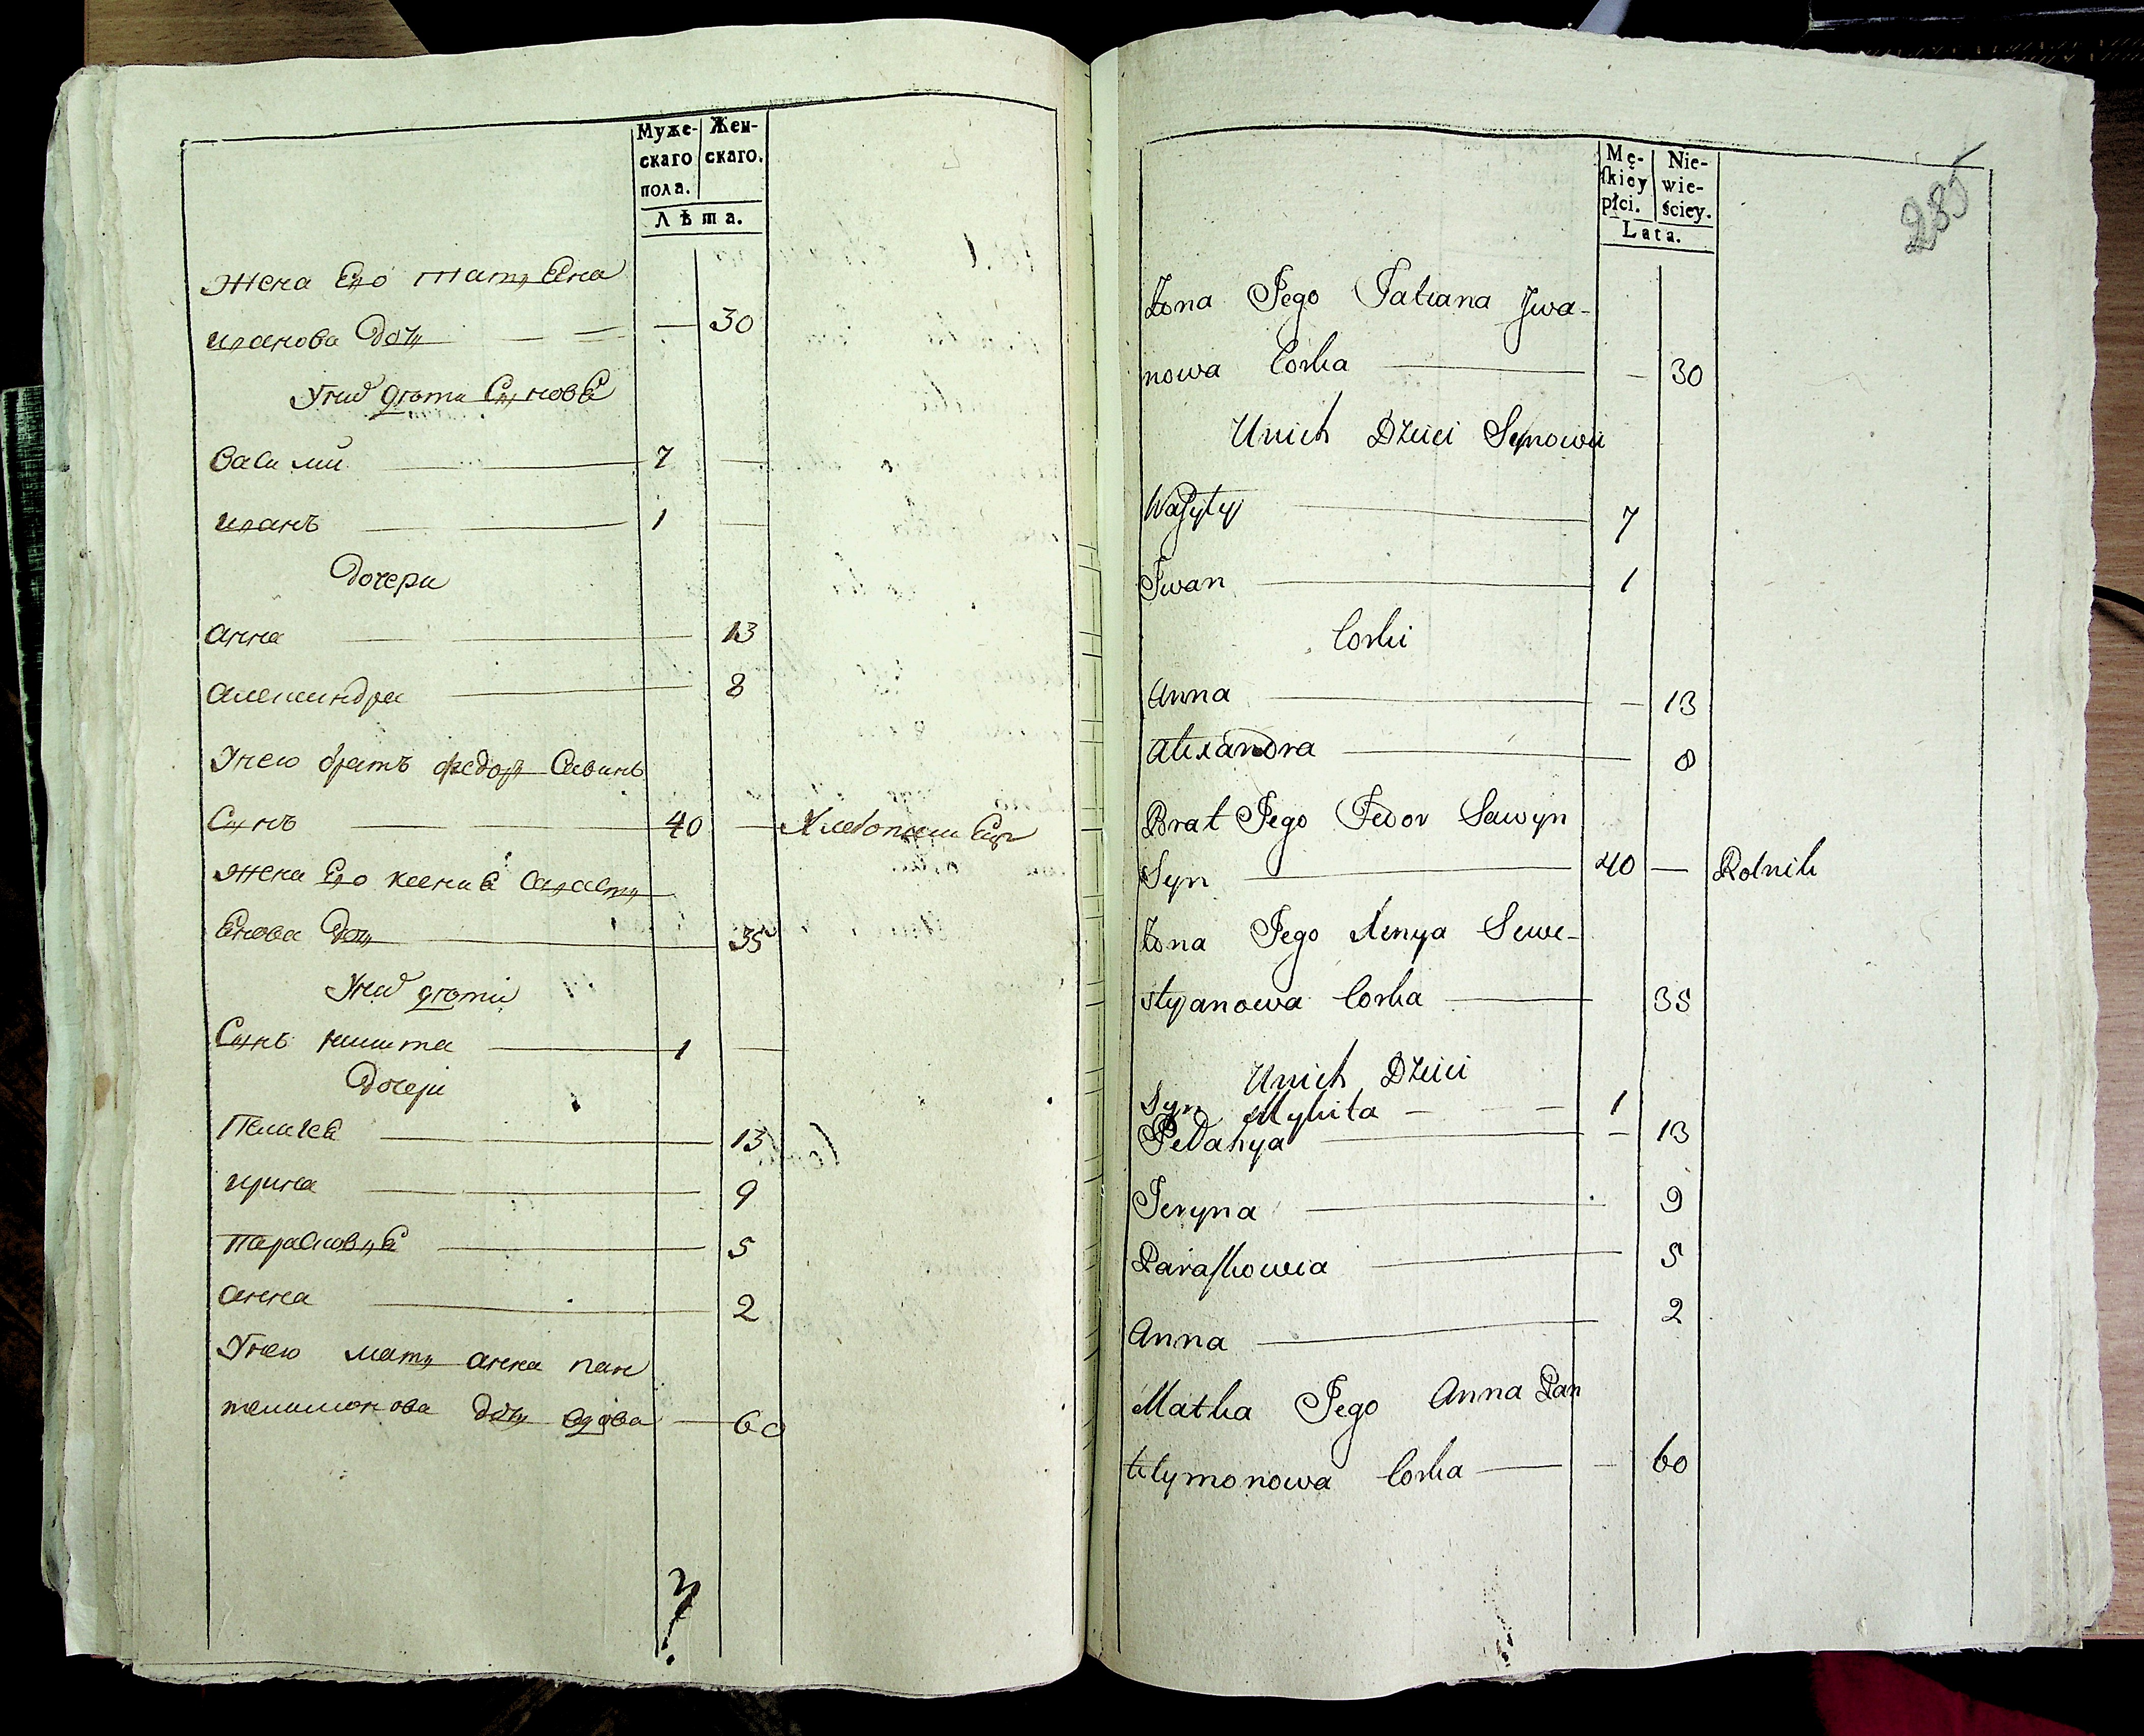 Муже-
скаго
пола.
Жен-
скаго.
Лѣта.
Жена Его Татьяна
иванова дочь — 30
У них дѣти Сыновья
Василий 7 —
иванъ 1 —
Дочери
анна 13
александра 8
У него братъ федоръ Савинъ
Сынъ 40 — Хлебопашец
жена Его ксения Савасть
янова дочь 35
У них дѣти
Сынъ никита 1 —
Дочери
Пелагея 13
ирина 9
парасковья 5
анна 2
У него мать анна пан
телимонова дочь вдова — 60
Mę-
skiey
płci.
Nie-
wie-
ściey.
Lata.
285
Żona Jego Tatiana Jwa-
nowa Corka — 30
Unich Dzieci Synowie
Wasylyj 7
Iwan 1
Corki
Anna — 13
Alexandra 8
Brat Jego Fedor Sawyn
Syn 40 — Rolnik
Żona Jego Xenya Sewe-
styanowa Corka 35
Unich Dzieci
Syn Mykita — 1
Pelahya — 13
Jeryna 9
Paraskowia 5
Anna 2
Matka Jego Anna Pan
telymonowa Corka — 60